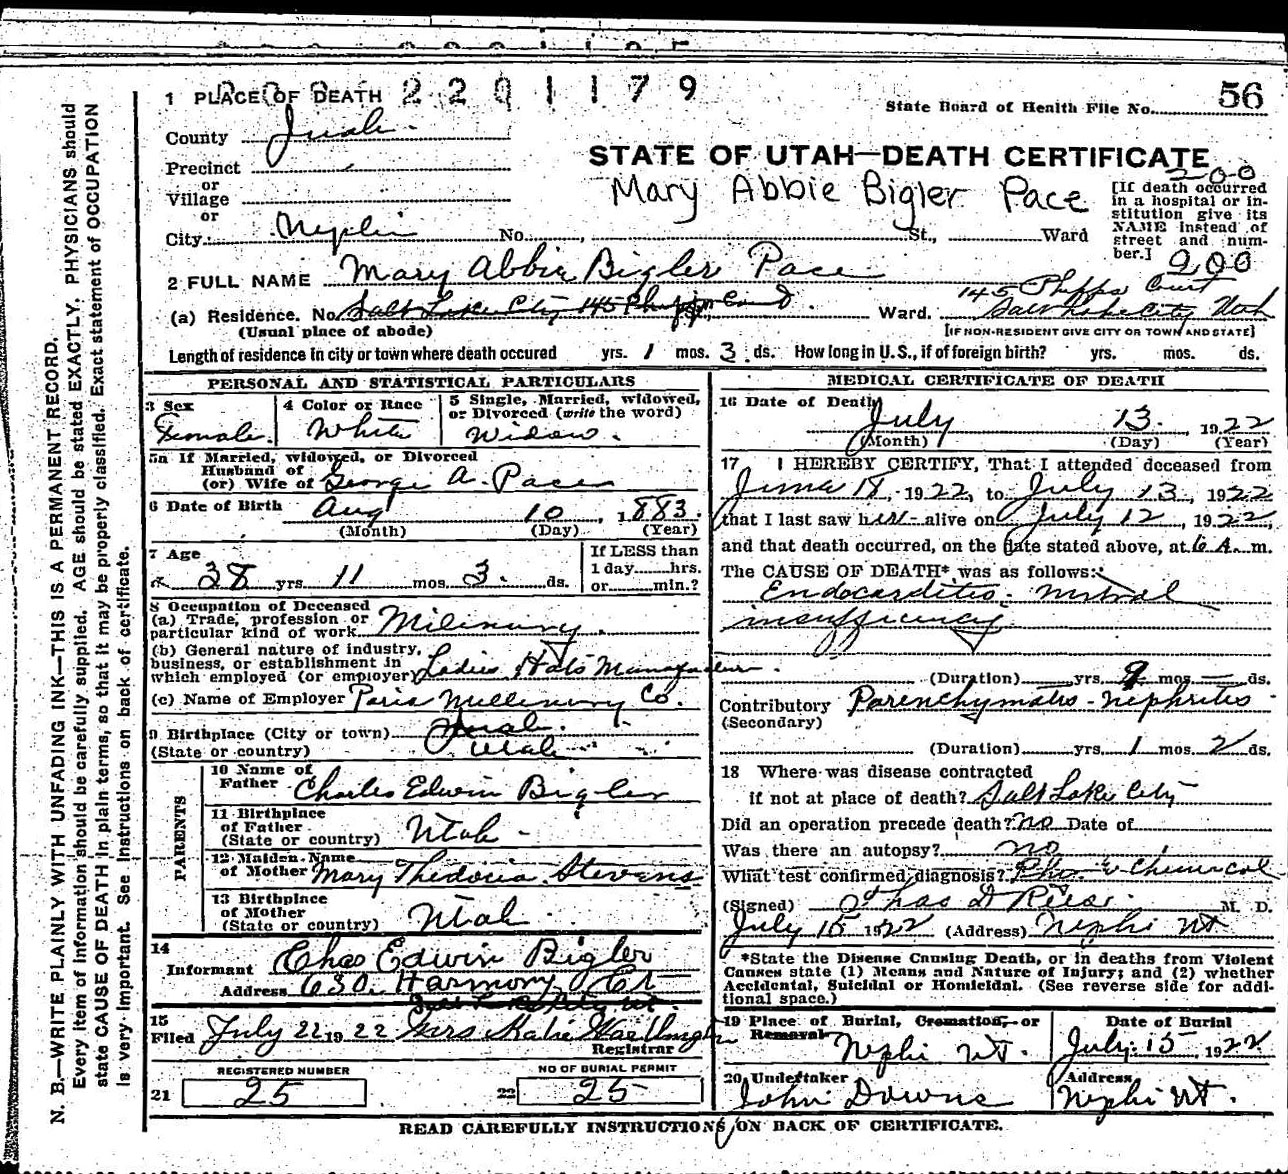 1 PLACE OF DEATH 2 2 0 1 1 7 9
State Board of Health File No. 56
County Juab.
STATE OF UTAH—DEATH CERTIFICATE
Precinct
or
Village
or
City Nephi No. , St., Ward
Mary Abbie Bigler Pace
200
[If death occurred in a hospital or institution give its NAME instead of street and number.]
200
2 FULL NAME Mary Abbie Bigler Pace
(a) Residence. No. Salt Lake City 145 Phipps Court Ward. 145 Phipps Court Salt Lake City Utah
(Usual place of abode) [IF NON-RESIDENT GIVE CITY OR TOWN AND STATE]
Length of residence in city or town where death occured yrs. 1 mos. 3 ds. How long in U. S., if of foreign birth? yrs. mos. ds.
PERSONAL AND STATISTICAL PARTICULARS
3 Sex
Female.
4 Color or Race
White
5 Single, Married, widowed, or Divorced (write the word)
Widow.
5a If Married, widowed, or Divorced
Husband of
(or) Wife of George A. Pace
6 Date of Birth Aug 10, 1883.
(Month) (Day) (Year)
7 Age
38 yrs 11 mos. 3. ds.
If LESS than
1 day hrs.
or min.?
8 Occupation of Deceased
(a) Trade, profession or
particular kind of work Milinury.
(b) General nature of industry,
business, or establishment in
which employed (or employer) Ladies Hats
(c) Name of Employer Paris Millinury Co.
9 Birthplace (City or town) Juab.
(State or country) Utah
PARENTS
10 Name of
Father Charles Edwin Bigler
11 Birthplace
of Father
(State or country) Utah
12 Maiden Name
of Mother Mary Thedocia Stevens
13 Birthplace
of Mother
(State or country) Utah
14
Informant Chas Edwin Bigler
Address 630 Harmony Ct
Salt Lake City Ut
15
Filed July 22 1922 Mrs Katie
Registrar
REGISTERED NUMBER
21 25
NO OF BURIAL PERMIT
22 25
MEDICAL CERTIFICATE OF DEATH
16 Date of Death July 13. 1922
(Month) (Day) (Year)
17 I HEREBY CERTIFY, That I attended deceased from
June 18, 1922, to July 13, 1922
that I last saw her alive on July 12, 1922,
and that death occurred, on the date stated above, at 6 A. m.
The CAUSE OF DEATH* was as follows:
Endocarditis - mitral
insufficiency
(Duration) yrs. 9 mos. — ds.
Contributory Parenchymatis - nephritis
(Secondary)
(Duration) yrs. 1 mos. 2 ds.
18 Where was disease contracted
if not at place of death? Salt Lake City
Did an operation precede death? no Date of
Was there an autopsy? no
What test confirmed diagnosis? Phys. & Chemical
(Signed) M. D.
July 15 1922 (Address) Nephi Ut
*State the Disease Causing Death, or in deaths from Violent
Causes state (1) Means and Nature of Injury; and (2) whether
Accidental, Suicidal or Homicidal. (See reverse side for additional space.)
19 Place of Burial, Cremation, or
Removal Nephi Ut.
Date of Burial
July 15 1922
20 Undertaker
John Downs
Address
Nephi Ut.
READ CAREFULLY INSTRUCTIONS ON BACK OF CERTIFICATE.
N. B.—WRITE PLAINLY WITH UNFADING INK—THIS IS A PERMANENT RECORD.
Every item of Information should be carefully supplied. AGE should be stated EXACTLY. PHYSICIANS should
state CAUSE OF DEATH in plain terms, so that it may be properly classified. Exact statement of OCCUPATION
is very important. See Instructions on back of certificate.